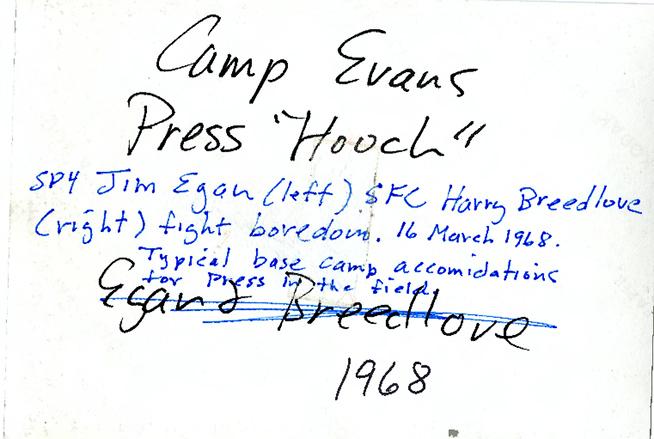 Camp Evans
Press "Hooch"
SP4 Jim Egan (left) SFC Harry Breedlove
(right) fight boredom. 16 March 1968.
Typical base camp accomidations
for Press in the field.
Egan & Breedlove
1968